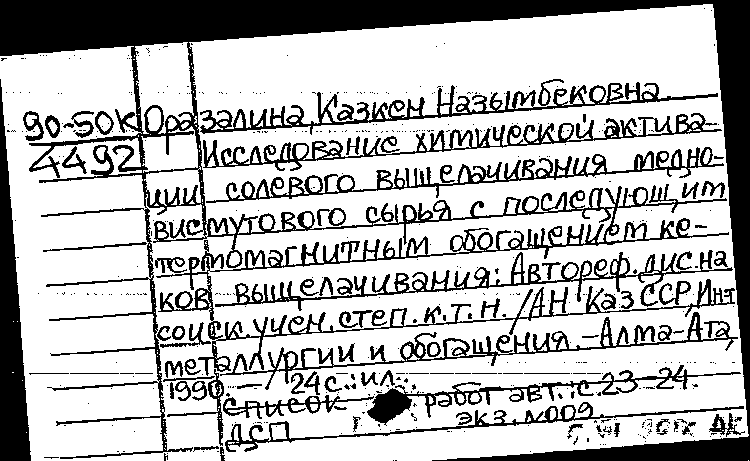 90-50К Оразалина, Казкен Назымбековна
4492 Исследование химической актива-
ции солевого выщелачивания медно-
висмутового сырья с последующим
термомагнитным обогащением ке-
ков выщелачивания: Автореф. дис. на
соиск. учен. степ. к.т.н. / АН КазССР, Ин-т
металлургии и обогащения. – Алма-Ата,
1990. – 24 с.: ил.
Список работ авт.: с. 23-24.
ДСП экз. №009.